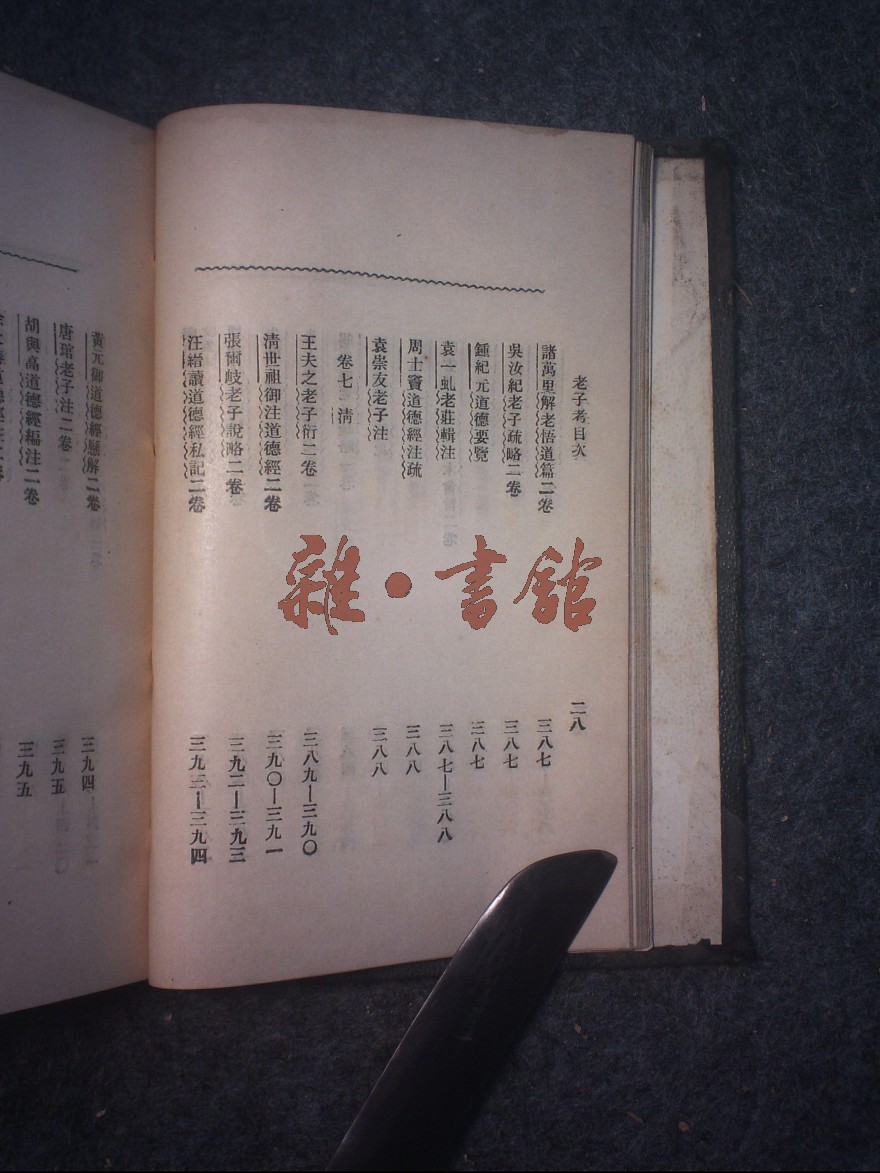 老子考目次
二八
諸萬里解老悟道篇二卷 三八七
吳汝紀老子疏略二卷 三八七
鍾紀元道德要覽 三八七
袁一虬老莊輯注 三八七—三八八
周士竇道德經注疏 三八八
袁崇友老子注 三八八
卷七 清
王夫之老子衍二卷 三八九—三九〇
清世祖御注道德經二卷 三九〇—三九一
張爾岐老子說略二卷 三九二—三九三
汪縉讀道德經私記二卷 三九三—三九四
黃元御道德經懸解二卷 三九四
唐琯老子注二卷 三九五
胡與高道德經編注二卷 三九五
雜·書館